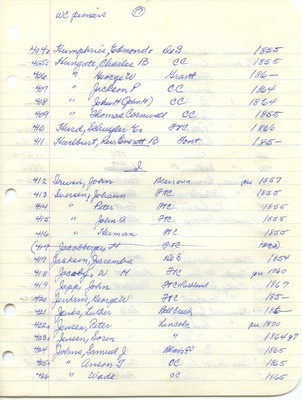 WC pioneers
404a Humphries, Edmond DeS 1855
405a Hungate, Charles B CC 1855
406 " George W Grant 186-
407 " Jackson P CC 1864
408 " John H (John H) CC 1864
409 " Thomas Cornwall CC 1855
410 Hurd, Schuyler E. FTC 1866
411 Hurlburt, Rev. Everett B Font 185-
I
412 Irwin, John pre 1857
413 Iverson, Johann FTC 1857
414 " Peter FTC 1855
415 " John A FTC 1855
416 " Herman FTC 1855
417 Jacobberger, H FTC
417 Jackson, Zaremba DeS 1854
418 Jacoby, W H FTC pre 1860
419 Japp, John FTC Richland 1867
420 Jenkins, George W FTC 185-
421 Jenks, Luther Bell Creek 186-
422a Jensen, Peter Lincoln pre 1870
423a Jensen, Soren " 1864
424 Johns, Samuel J Blair CC 1865
425a " Anson T CC 1865
426 " Wade CC 1865